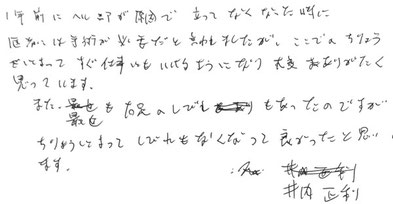 1年前にヘルニアが原因で立ってなくなった時に
医者には手術が必要だと言われましたが、ここでのちりょう
をしてもらってすぐ仕事にもいけるようになり大変ありがたく
思っています。
また、最近も右足のしびれもあったのですが
ちりょうしてもらってしびれもなくなって良かったと思い
ます。
井内 正利